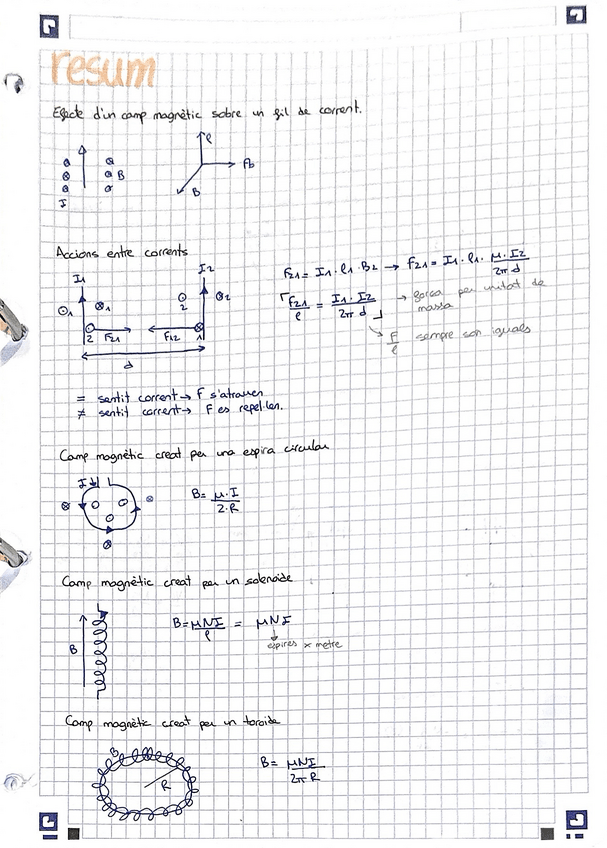 resum
Efecte d'un camp magnètic sobre un fil de corrent.
l
Fb
B
B
I
Accions entre corrents
I1
I2
F21 = I1 · l1 · B2 → F21 = I1 · l1 · μ · I2 / 2π d
F21 / l = I1 · I2 / 2π d → força per unitat de massa
F / l sempre son iguals
⊙1 ⊗1
⊙2 ⊗2
2 F21 F12 1
d
= sentit corrent → F s'atrauen
≠ sentit corrent → F es repel·len.
Camp magnètic creat per una espira circular
I
B = μ · I / 2 · R
Camp magnètic creat per un solenoide
B
B = μNI / l = μNI
espires x metre
Camp magnètic creat per un toroide
B
R
B = μNI / 2π R